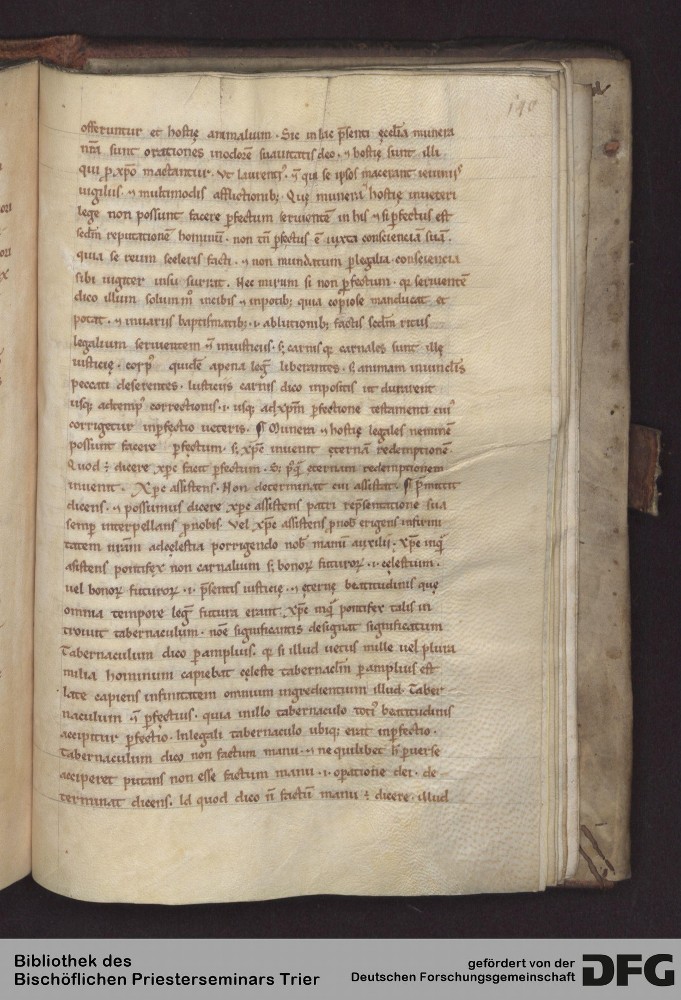 140
offeruntur et hostię animalium · Sic in hac p̄senti ęcclia munera
nr̄a sunt orationes inodorē suauitatis deo · ⁊ hostię sunt illi
qui p xp̄o mactantur · Vt laurenti᷒ · ⁊ qui se ipsos macerant ieiuniis
uigiliis · ⁊ multimodis afflictionib; · Quę munera ⁊ hostię inueteri
lege non possunt facere pfectum seruientē in his ⁊ si pfectus est
scdm reputationē hominū · non tn̄ pfectus ē iuxta conscienciam suā ·
quia se reum sceleris facti · ⁊ non mundatum p legilia · consciencia
sibi iugiter insusurrat · Nec mirum si non pfectum · q̇ seruientē
dico illum solum m̊ incibis ⁊ inpotib; quia copiose manducat et
potat · ⁊ inuariis baptismatib; · i · ablutionib; factis scdm ritus
legalium seruientem ⁊ iniusticiis · s; carnis q̇ carnales sunt illę
iusticię · corp᷒ quidē apena leḡ liberantes · s; animam inuinclīs
peccati deserentes · Iusticiis carnis dico inpositis ut durarent
usq; adtemp᷒ correctionis · i · usq; adxp̄m pfectionē testamenti cui᷒
corrigetur inpfectio ueteris · Munera ⁊ hostię legales neminē
possunt facere pfectum · s; xp̄c inuenit ęternā redemptionē ·
Quod ÷ dicere xp̄c facit pfectum · ęternam redemptionem
inuenit · Xp̄c assistens · Non determinat cui assistat
dicens · ⁊ possumus dicere xp̄c assistens patri rep̄sentatione sua
semp interpellans p nobis · Vel xp̄c assistens p nob̄ erigens infirmi
tatem nr̄am adcęlestia porrigendo nob̄ manū auxilii · xp̄c inq̄
asistens pontifex non carnalium s; bonoꝝ futuroꝝ · i · cęlestium ·
uel bonoꝝ futuroꝝ · i · p̄sentis iusticię · ⁊ ęternę beatitudinis quę
omnia tempore leḡ futura erant · xp̄c inq̄ pontifex talis in
troiuit tabernaculum · noīe significantis designat significatum
Tabernaculum dico pamplius · q̇ si illud uetus mille uel plura
milia hominum capiebat cęleste tabernaclm̄ pamplius est
late capiens infinitatem omnium ingredientium illud · Taber
naculum ⁊ pfectius · quia inillo tabernaculo toti᷒ beatitudinis
accipitur pfectio · Inlegali tabernaculo ubiq; erat inpfectio ·
Tabernaculum dico non factum manu · ⁊ ne quilibet h̄ puerse
acciperet putans non esse factum manu · i · opatione dei · de
terminat dicens · Id quod dico n̄ factū manu ÷ dicere · illud
Bibliothek des
Bischöflichen Priesterseminars Trier
gefördert von der
Deutschen Forschungsgemeinschaft
DFG